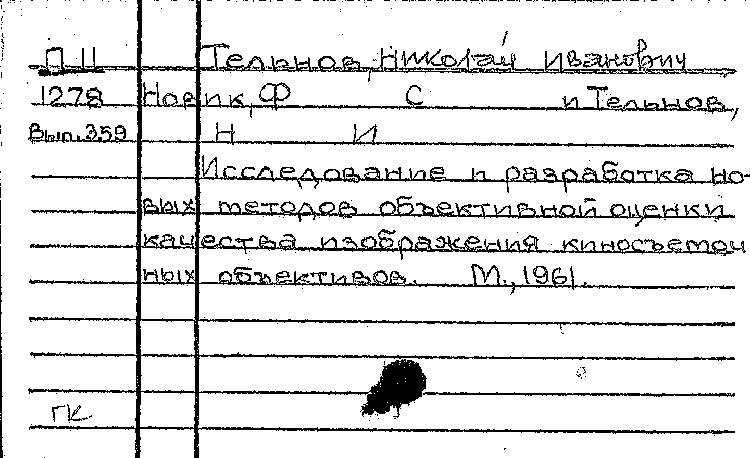 П 11 Тельнов, Николай Иванович
1278 Новик, Ф С и Тельнов,
Вып. 359 Н И
Исследование и разработка но-
вых методов объективной оценки
качества изображения киносъемоч
ных объективов. М., 1961.
ГК